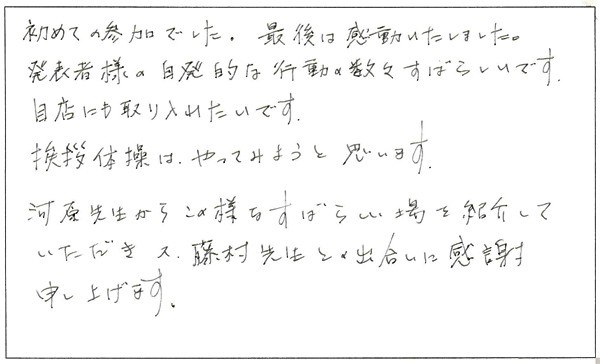 初めての参加でした。最後は感動いたしました。
発表者様の自発的な行動の数々すばらしいです。
自店にも取り入れたいです。
挨拶体操は、やってみようと思います。
河原先生からこの様なすばらしい場を紹介して
いただき又、藤村先生との出合いに感謝
申し上げます。